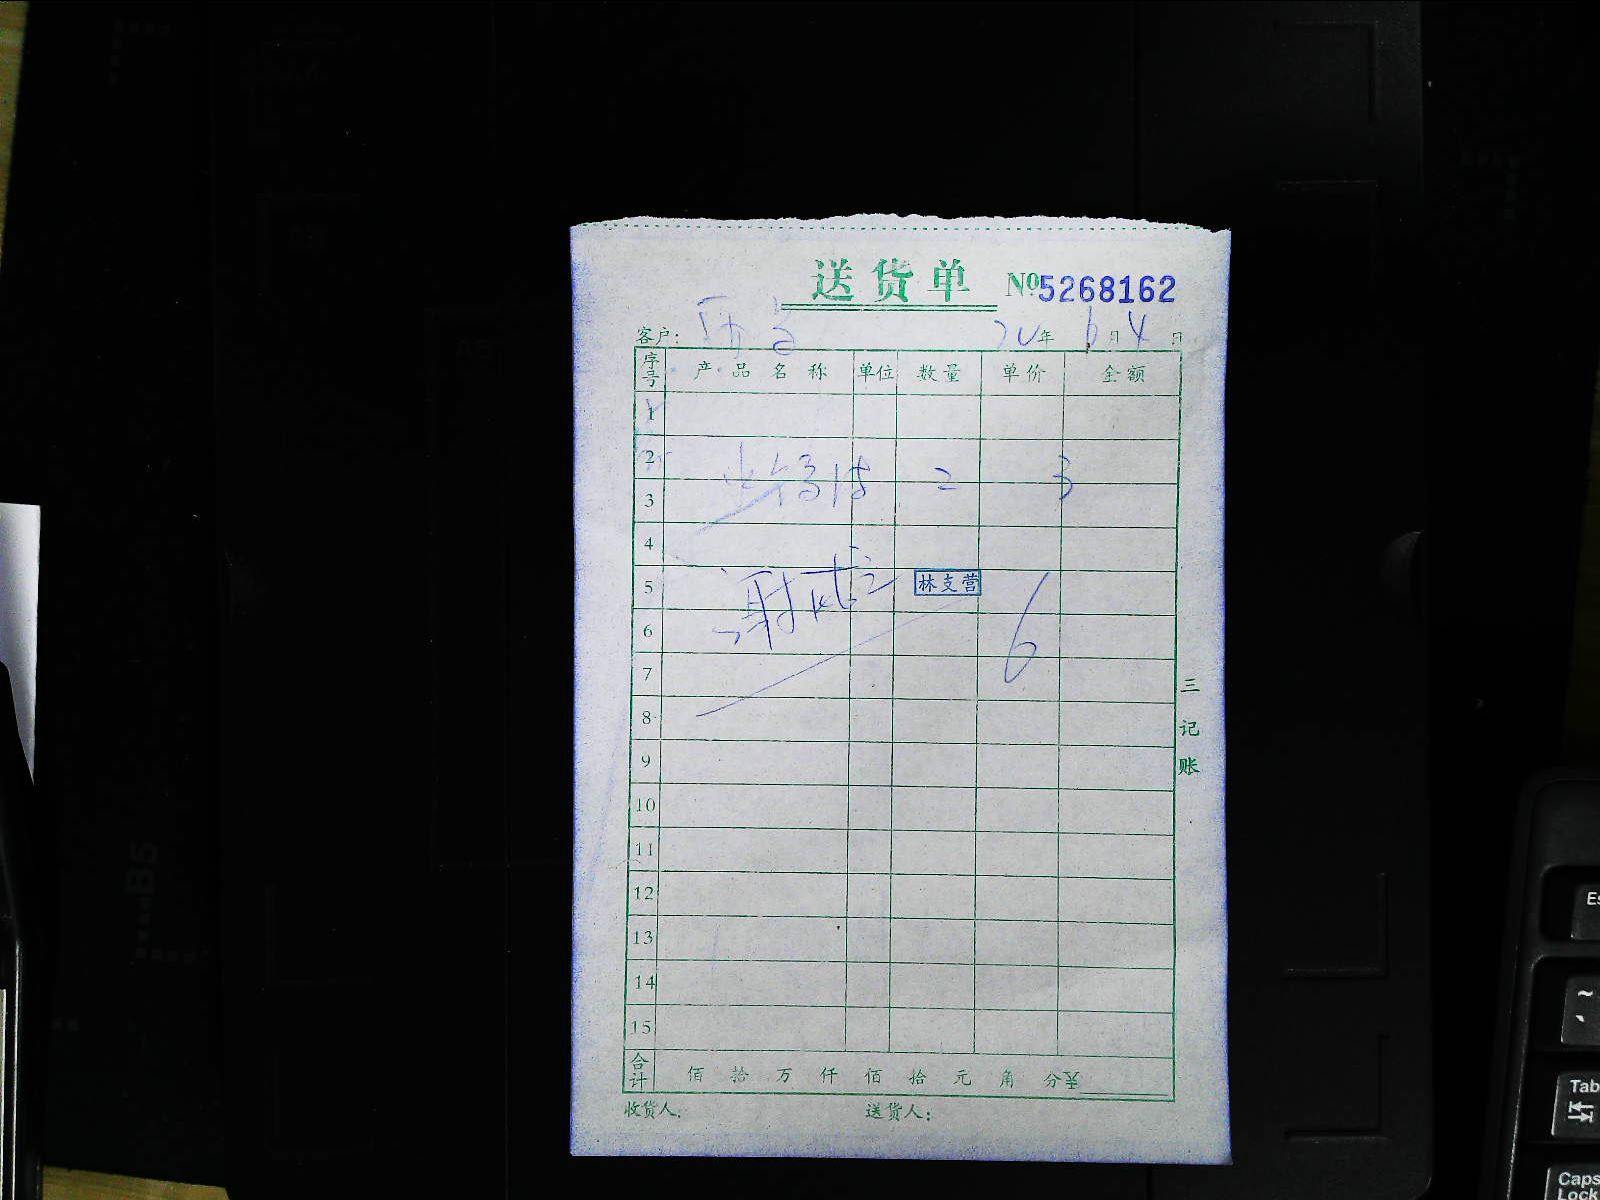 送货单 №5268162
客户: 20年6月4日
序号 产品名称 单位 数量 单价 金额
1
2
2 3
3
4
5 林支营
6
6
7
8
9
10
11
12
13
14
15
合计 佰 拾 万 仟 佰 拾 元 角 分¥
收货人: 送货人:
三记账
B5
Es
~
Tab
Caps
Lock